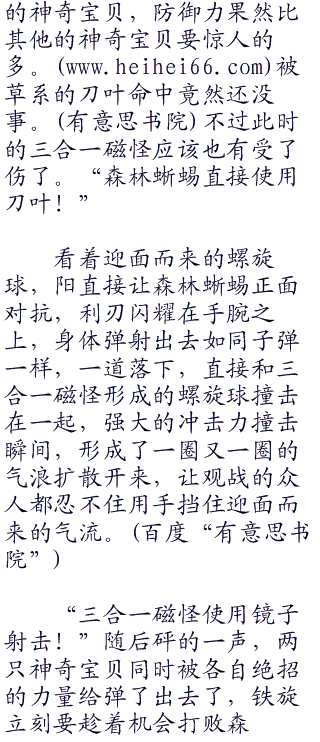 的神奇宝贝，防御力果然比
其他的神奇宝贝要惊人的
多。(www.heihei66.com)被
草系的刀叶命中竟然还没
事。(有意思书院)不过此时
的三合一磁怪应该也有受了
伤了。“森林蜥蜴直接使用
刀叶！”
看着迎面而来的螺旋
球，阳直接让森林蜥蜴正面
对抗，利刃闪耀在手腕之
上，身体弹射出去如同子弹
一样，一道落下，直接和三
合一磁怪形成的螺旋球撞击
在一起，强大的冲击力撞击
瞬间，形成了一圈又一圈的
气浪扩散开来，让观战的众
人都忍不住用手挡住迎面而
来的气流。(百度“有意思书
院”)
“三合一磁怪使用镜子
射击！”随后砰的一声，两
只神奇宝贝同时被各自绝招
的力量给弹了出去了，铁旋
立刻要趁着机会打败森